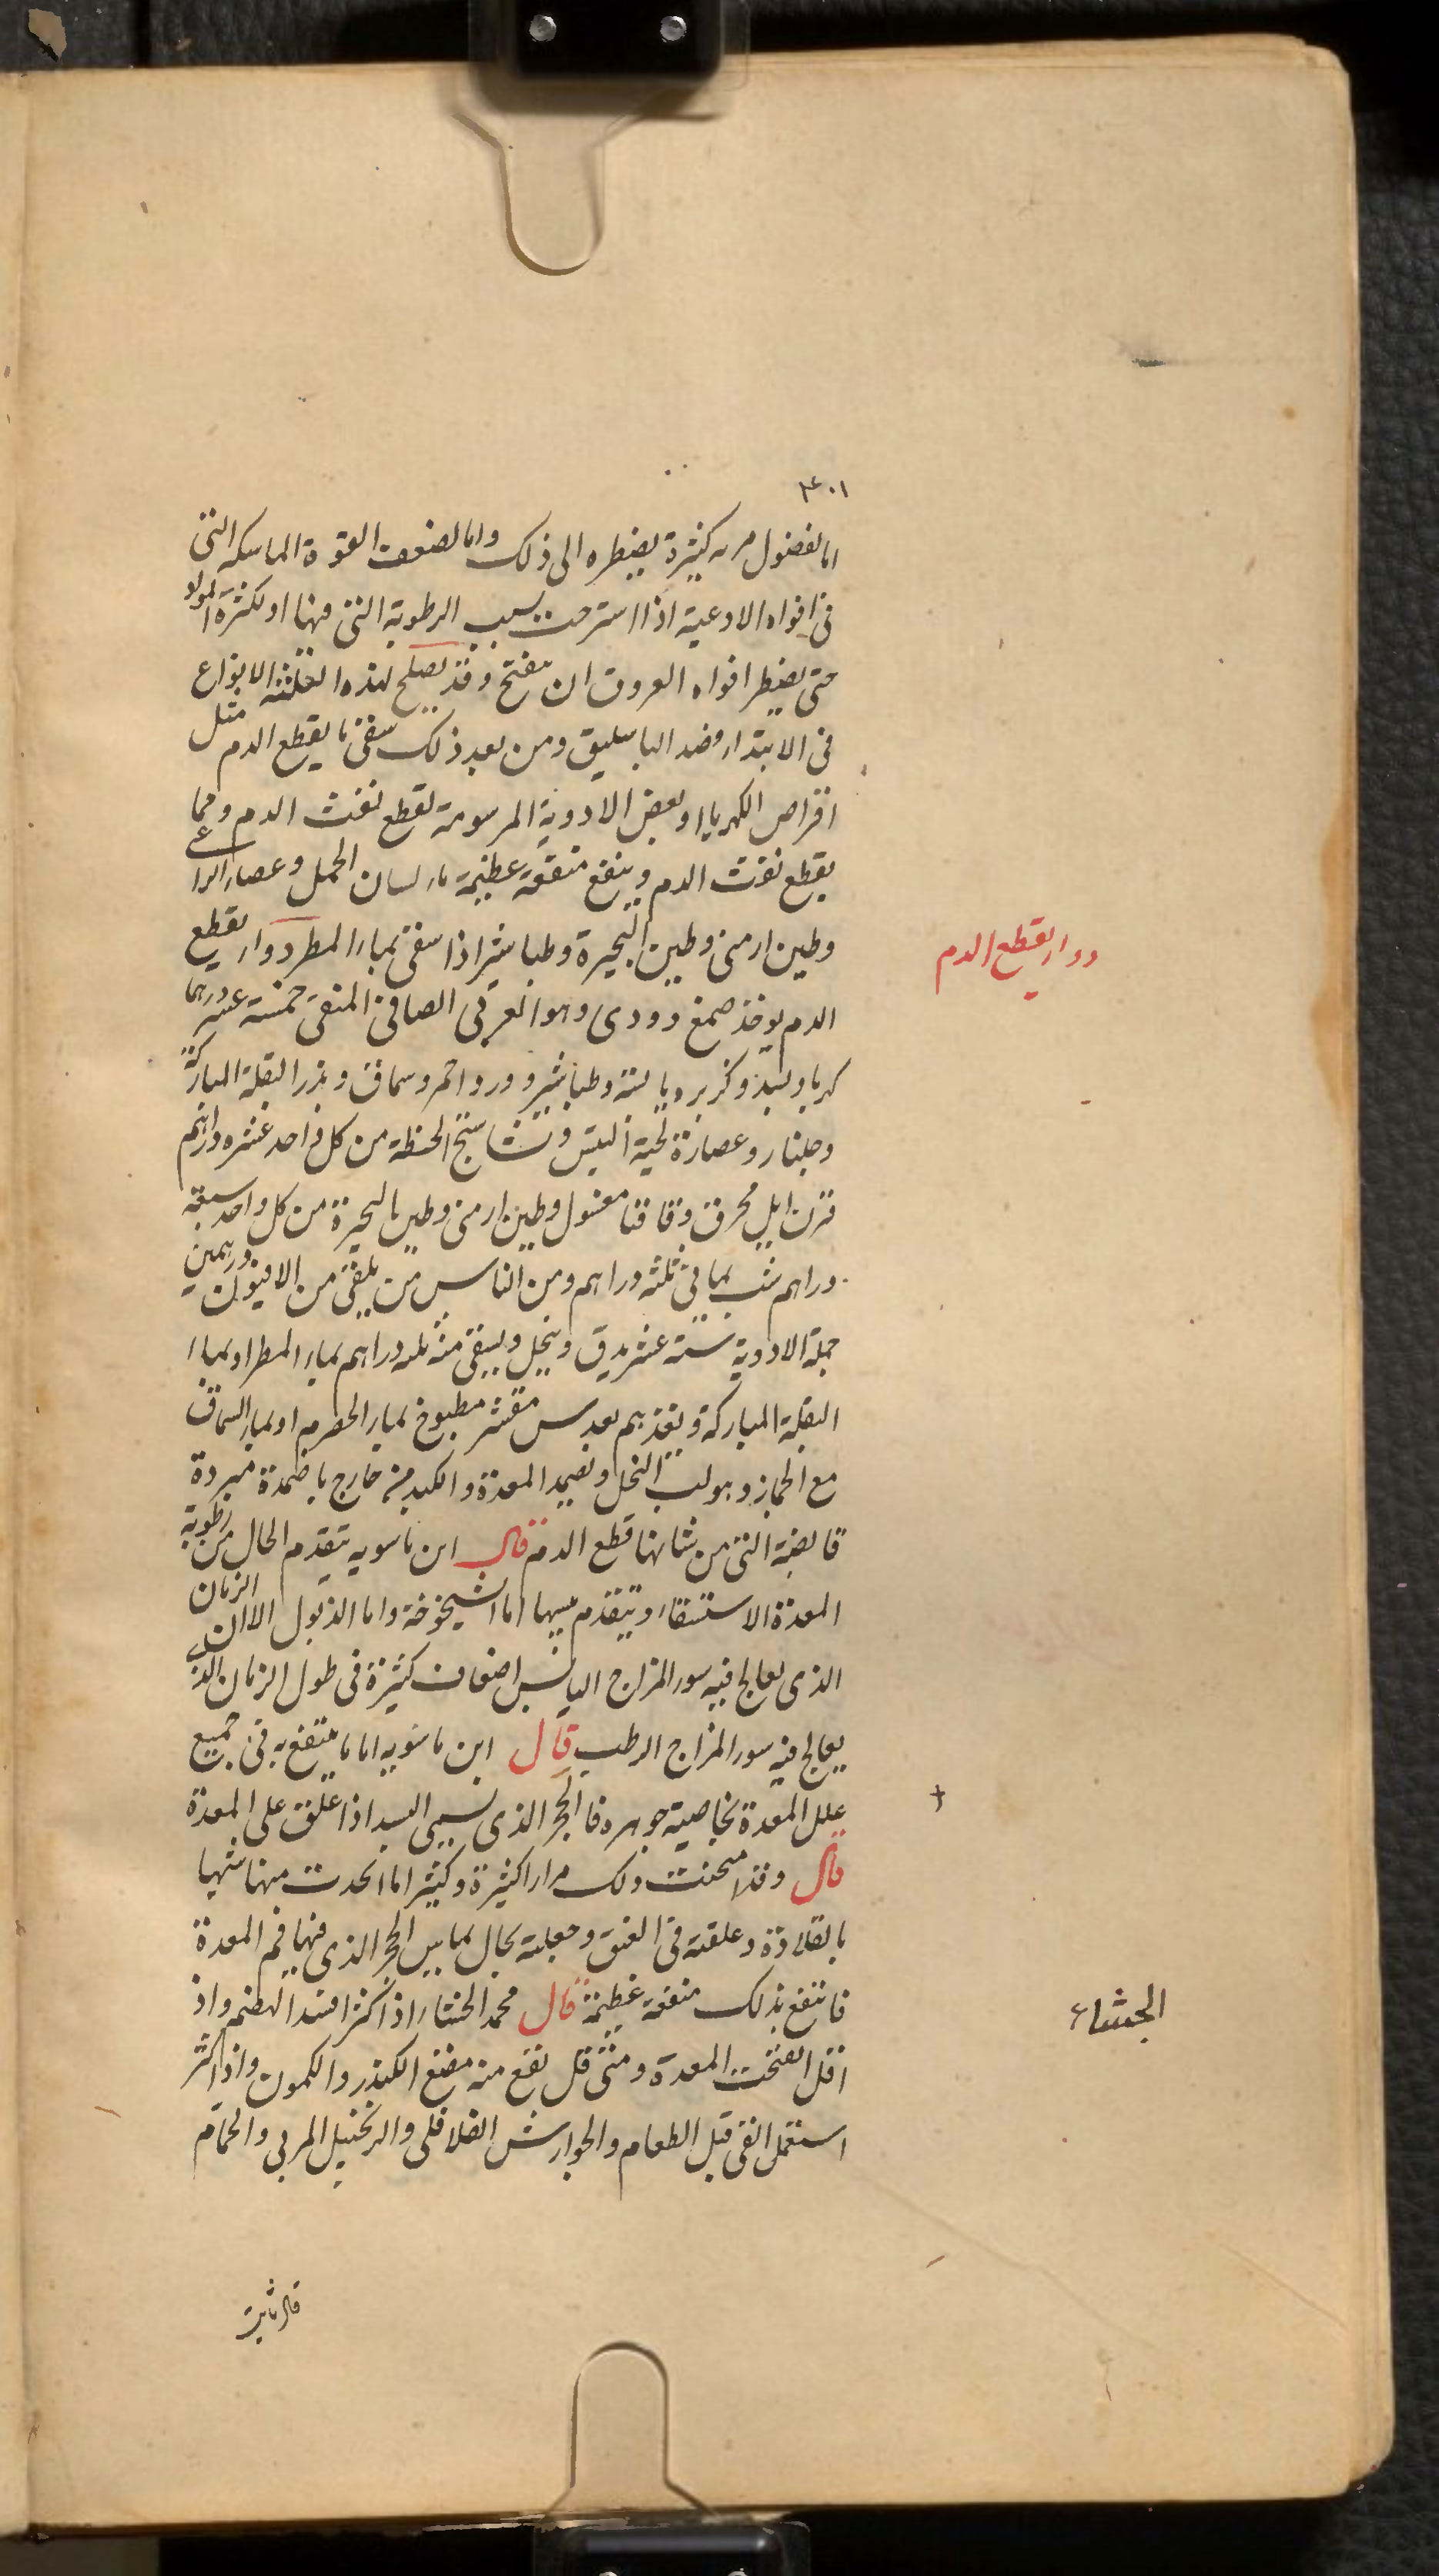 ٣٠١
اما لفضول مره كثيرة يضطره الى ذلك واما لضعف القوة الماسكه التى
فى افواه الاوعية اذا استرخت بسبب الرطوبة التى فيها او لكثرة المواد
حتى يضطر افواه العروق ان تنفتح وقد يصلح لهذه الثلثة الانواع
فى الابتداء فصد الباسليق ومن بعد ذلك سقى ما يقطع الدم مثل
اقراص الكهربا وبعض الادوية المرسومة لقطع نفث الدم ومما
يقطع نفث الدم وينفع منفعة عظيمة ماء لسان الحمل وعصا الراعى
وطين ارمنى وطين البحيرة وطباشير اذا سقى بماء المطر دواء يقطع
الدم يوخذ صمغ دودى وهو العربى الصافى المنقى خمسة عشر درهما
كهربا وبسذ وكزبره يابسة وطباشير وورد احمر وسماق وبزر البقلة المباركة
وجلنار وعصارة لحية التيس ونشاستج الحنطة من كل واحد عشره دراهم
قرن ايل محرق وقاقيا مغسول وطين ارمنى وطين البحيرة من كل واحد سبعة
دراهم شب يمانى ثلثه دراهم ومن الناس من يلقى من الافيون درهمين
جملة الادوية ستة عشر يدق وينخل ويسقى منه ثلثه دراهم بماء المطر او بماء
البقلة المباركة وتغذيهم بعدس مقشر مطبوخ بماء الحصرم او بماء السماق
مع الجماز وهو لب النخل وتضمد المعدة والكبد من خارج باضمدة مبردة
قابضة التى من شانها قطع الدم قال ابن ماسويه يتقدم الحال من رطوبة
المعدة الاستسقاء ويتقدم يبسها اما الشيخوخة واما الذبول الا ان الزمان
الذى يعالج فيه سوء المزاج اليابس اضعاف كثيرة فى طول الزمان الذى
يعالج فيه سوء المزاج الرطب قال ابن ماسويه اما ما ينتفع به فى جميع
علل المعدة بخاصية جوهره فالحجر الذى يسمى اليسب اذا علق على المعدة
قال وقد امتحنت ذلك مرارا كثيرة وكثيرا ما اتخذت منها شبيها
بالقلادة وعلقته فى العنق وجعلته بحال يماس الحجر الذى فيها فم المعدة
فانتفع بذلك منفعة عظيمة قال محمد الجشاء اذا كثر افسد الهضم واذ
اقل انتفخت المعدة ومتى قل نفع منه مضغ الكندر والكمون واذا كثر
استعمل القى قبل الطعام والجوارش الفلافلى والزنجبيل المربى والحمام
قال ثابت
دواء يقطع الدم
الجشاء